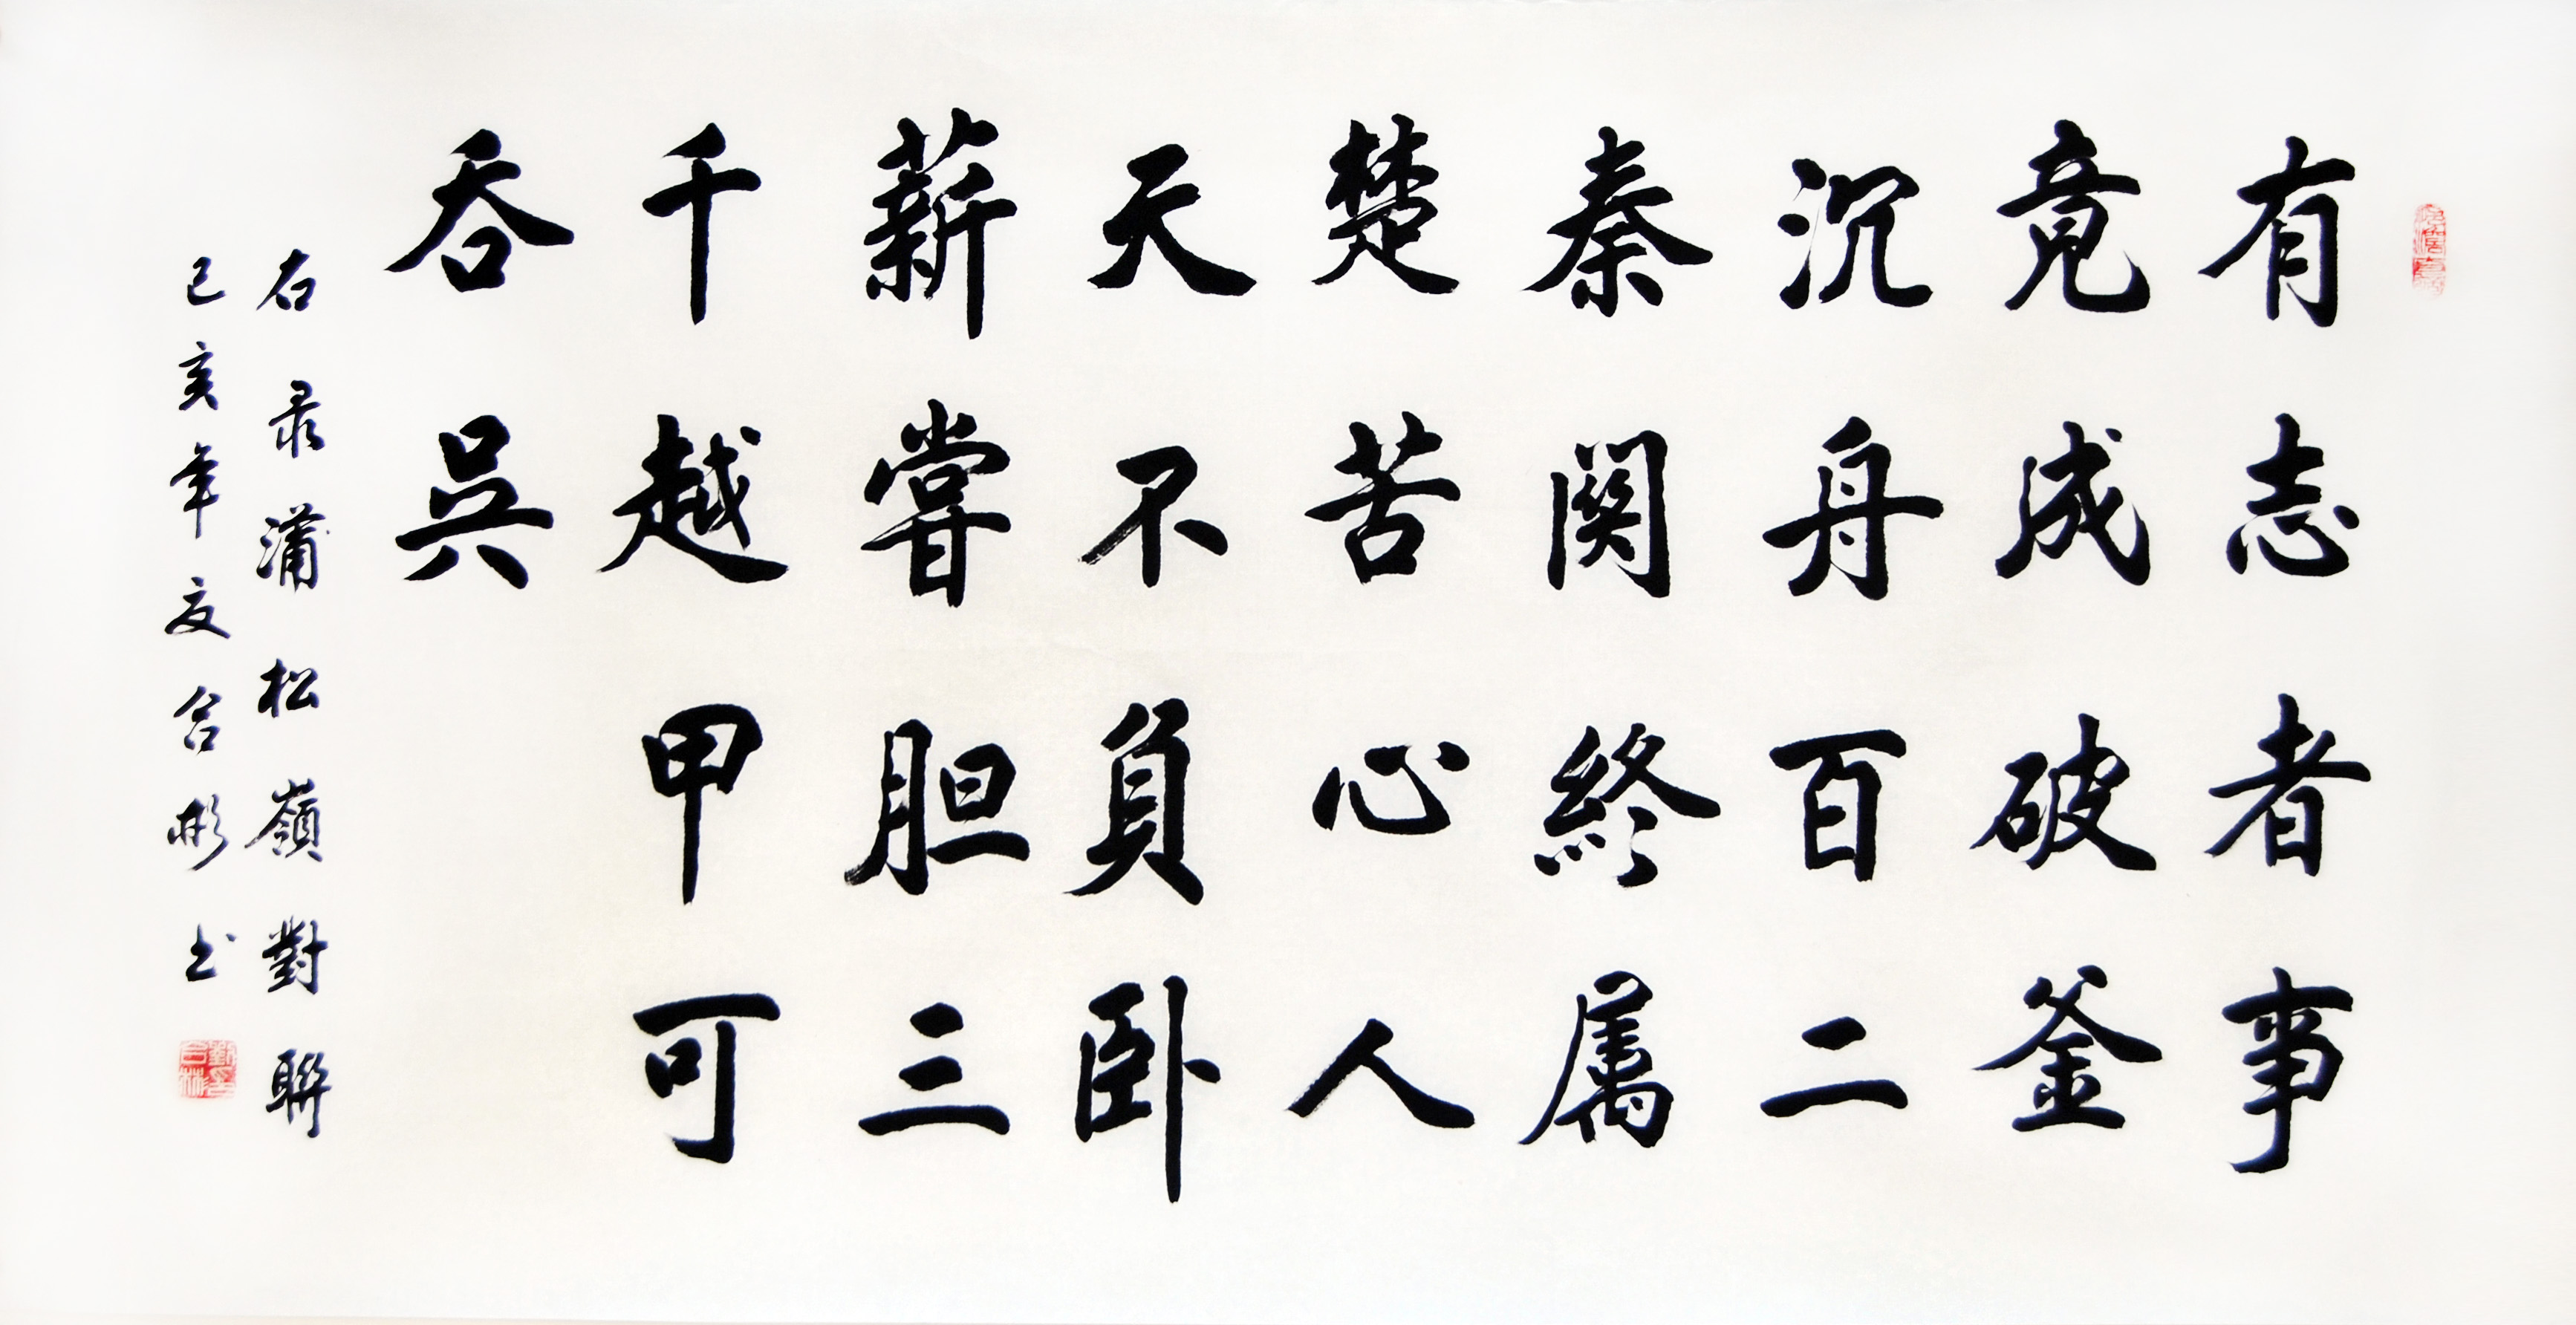 有志者事
竟成破釜
沉舟百二
秦関終属
楚苦心人
天不負卧
薪嘗胆三
千越甲可
吞吳
右录蒲松嶺對聯
己亥年文合彬书